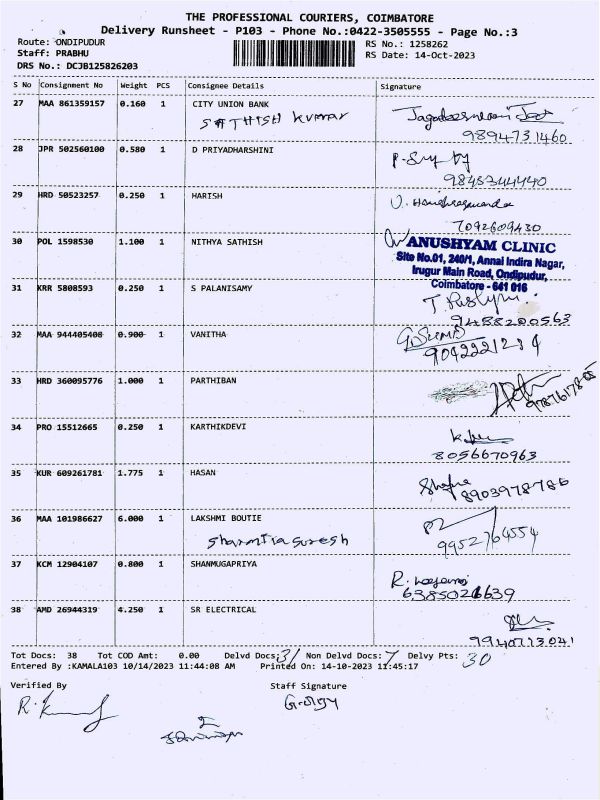 THE PROFESSIONAL COURIERS, COIMBATORE
Delivery Runsheet - P103 - Phone No.:0422-3505555 - Page No.:3
Route: ONDIPUDUR
RS No.: 1258262
Staff: PRABHU
RS Date: 14-Oct-2023
DRS No.: DCJB125826203
S No Consignment No Weight PCS Consignee Details Signature
27 MAA 861359157 0.160 1 CITY UNION BANK
SATHISH KUMAR
9894731460
28 JPR 502560100 0.580 1 D PRIYADHARSHINI
9843744440
29 HRD 50523257 0.250 1 HARISH
7092609430
30 POL 1598530 1.100 1 NITHYA SATHISH
ANUSHYAM CLINIC
Site No.01, 240/1, Annai Indira Nagar,
Irugur Main Road, Ondipudur,
Coimbatore - 641 016
31 KRR 5808593 0.250 1 S PALANISAMY
9488200563
32 MAA 944405408 0.900 1 VANITHA
9042221234
33 HRD 360095776 1.000 1 PARTHIBAN
34 PRO 15512665 0.250 1 KARTHIKDEVI
8056670963
35 KUR 609261781 1.775 1 HASAN
8903978786
36 MAA 101986627 6.000 1 LAKSHMI BOUTIE
Sharmila Suresh
9952764554
37 KCM 12904107 0.800 1 SHANMUGAPRIYA
6385026639
38 AMD 26944319 4.250 1 SR ELECTRICAL
9940773041
Tot Docs: 38 Tot COD Amt: 0.00 Delvd Docs: 31 Non Delvd Docs: 7 Delvy Pts: 30
Entered By :KAMALA103 10/14/2023 11:44:08 AM Printed On: 14-10-2023 11:45:17
Verified By Staff Signature